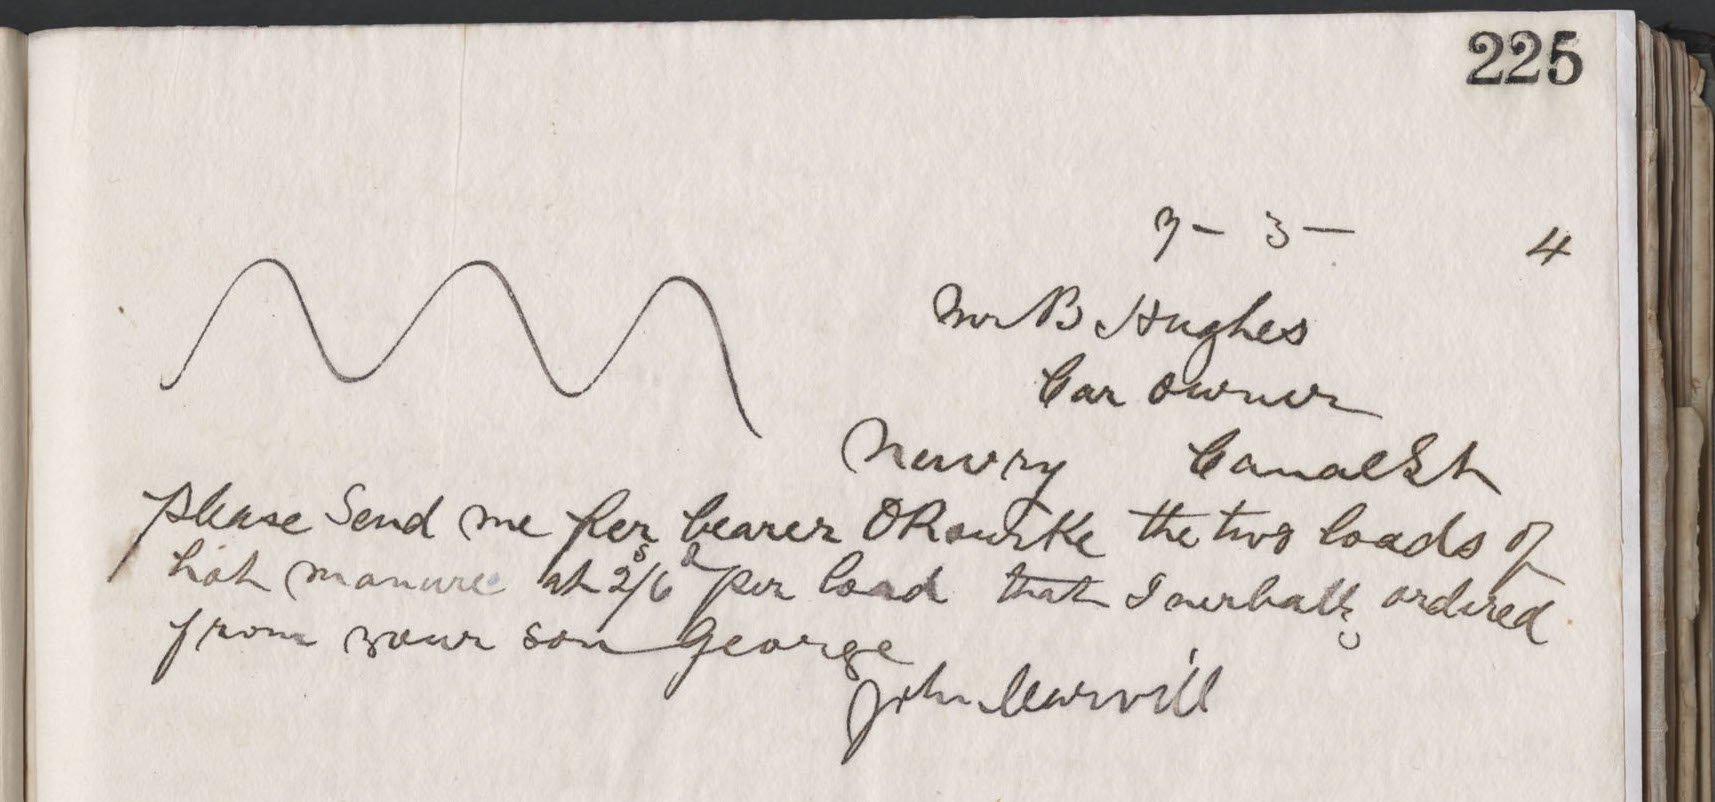 225
7 - 3 - 4
Mr B Hughes
Car owner
Newry Canal St
Please Send me per bearer O Rourke the two loads of
hot manure at 2s/6d per load that I verbally ordered
from your son George
John